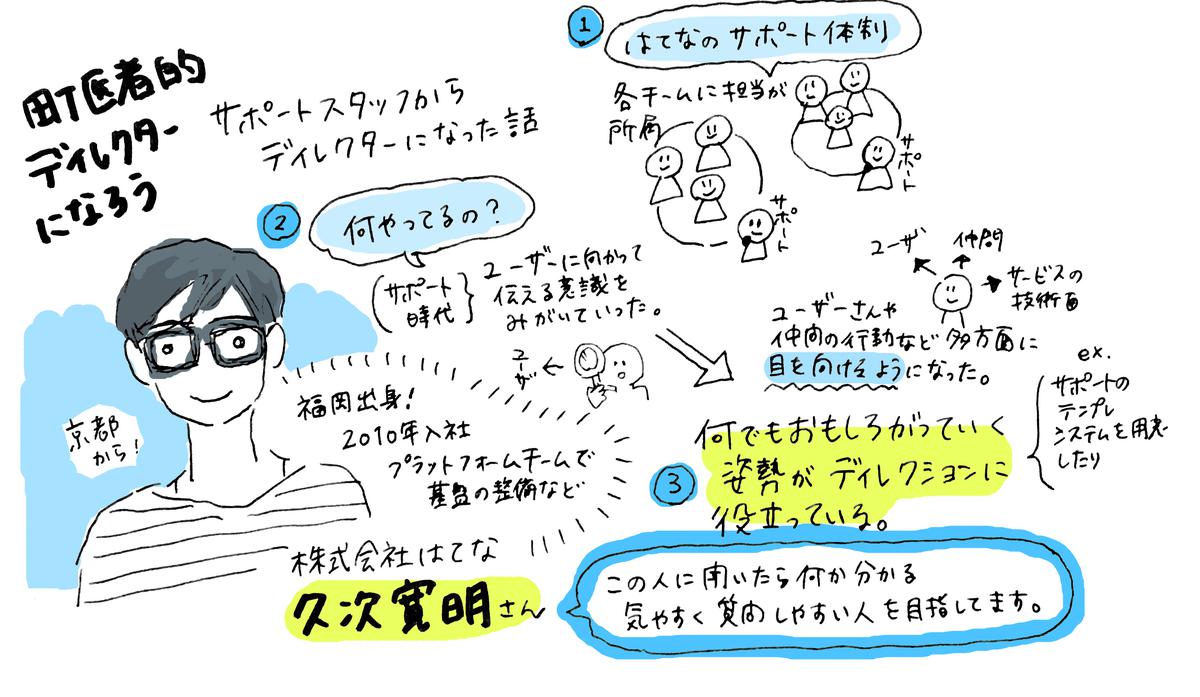 町医者的
ディレクター
になろう
サポートスタッフから
ディレクターになった話
1
はてなのサポート体制
各チームに担当が
所属
サポート
サポート
2
何やってるの？
サポート
時代
ユーザーに向かって
伝える意識を
みがいていった。
ユーザ
ユーザ
仲間
サービスの
技術面
ユーザーさんや
仲間の行動など多方面に
目を向けるようになった。
ex.
サポートの
テンプレ
システムを開発
したり
京都
から！
福岡出身！
2010年入社
プラットフォームチームで
基盤の整備など
3
何でもおもしろがっていく
姿勢がディレクションに
役立っている。
株式会社はてな
久次寛明さん
この人に聞いたら何か分かる
気やすく質問しやすい人を目指してます。